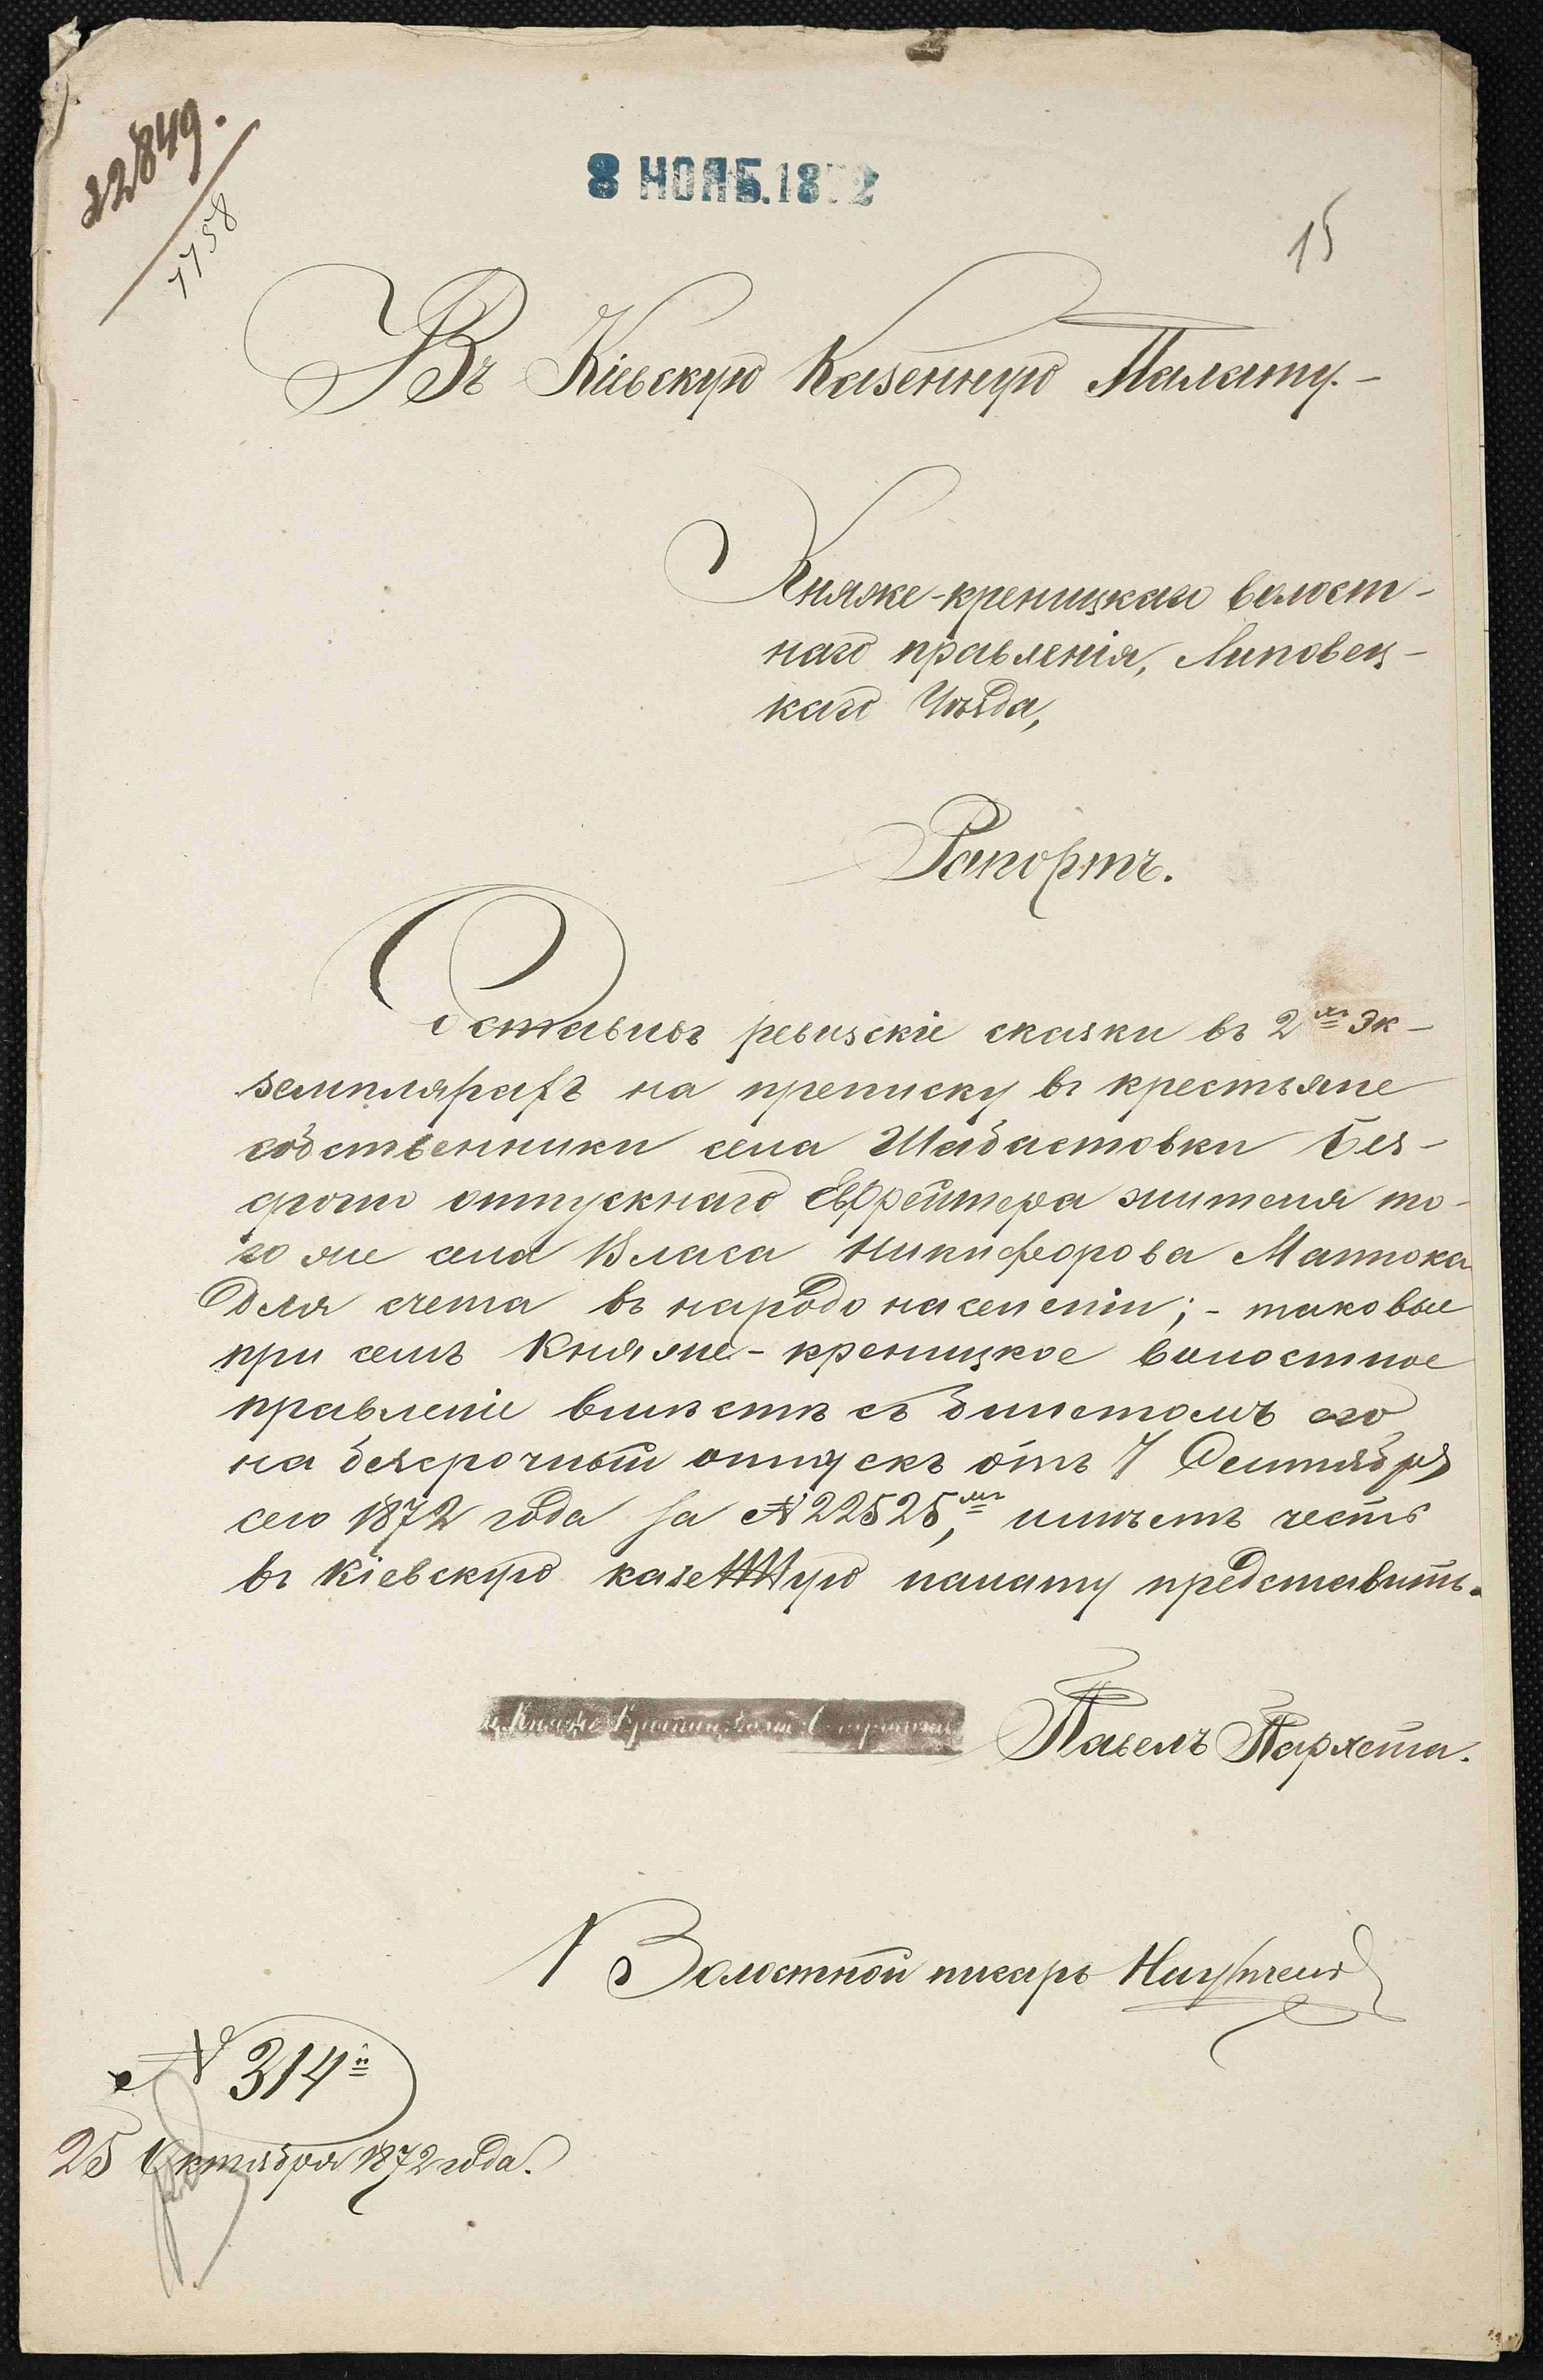 22849.
7758
8 НОЯБ. 1872
15
Въ Кіевскую Казенную Палату.-
Княже-креницкаго волост-
наго правленія, Липовец-
каго Уѣзда,
Рапортъ.
Составивъ ревизскіе сказки въ 2хъ эк-
земплярахъ на преписку въ крестьяне
собственники села Шабастовки без-
срочно отпускнаго Евфрейтера жителя то-
го же села Власа Никифорова
для счета въ народо населеніи; - таковые
при семъ Княже-креницкое волостное
правленіе вмѣстѣ съ билетомъ его
на безсрочный отпускъ отъ 7 Сентября
сего 1872 года за № 22525мъ, имѣетъ честь
въ Кіевскую казенную палату представить.
Павелъ
Волостной писарь
№ 314й
25 Октября 1872 года.